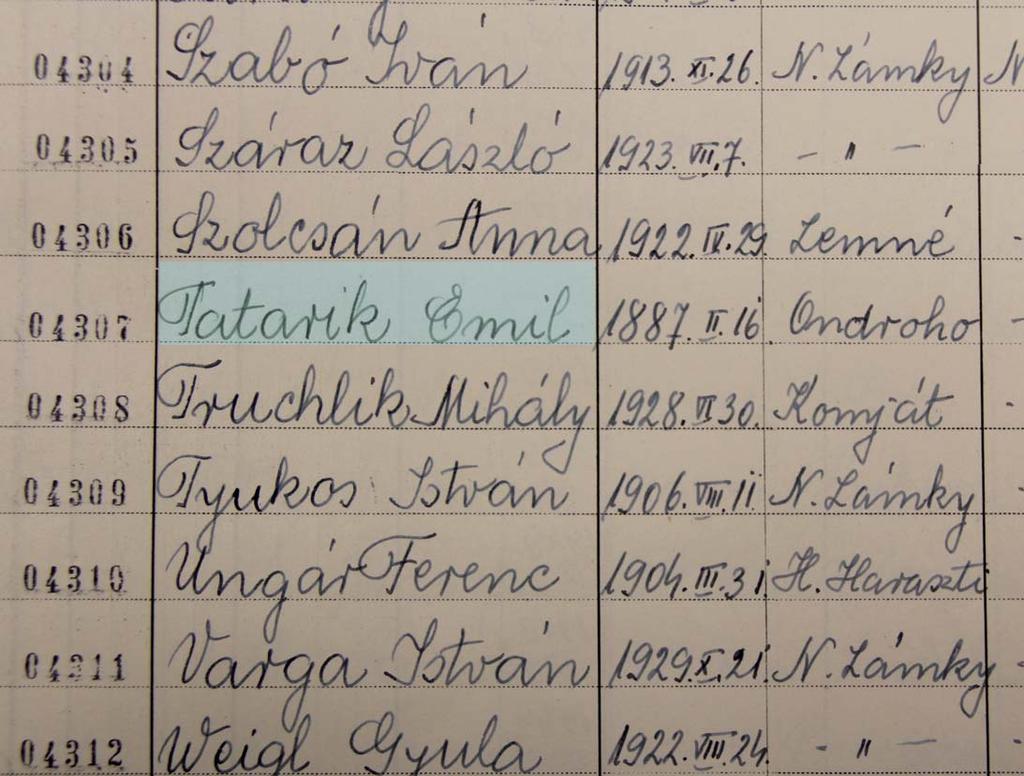 04304 Szabó Iván 1913. XI. 26. N. Lámky N
04305 Száraz László 1923. VII. 7. – " –
04306 Szolcsán Anna 1922. IV. 29. Lemné -
04307 Tatarik Emil 1887. II. 16. Ondroho -
04308 Truchlik Mihály 1928. VI. 30. Komját -
04309 Tyukos István 1906. VIII. 11. N. Lámky -
04310 Ungár Ferenc 1904. III. 31. H. Haraszti
04311 Varga István 1929. X. 21. N. Lámky -
04312 Weigl Gyula 1922. VIII. 24. - " – -